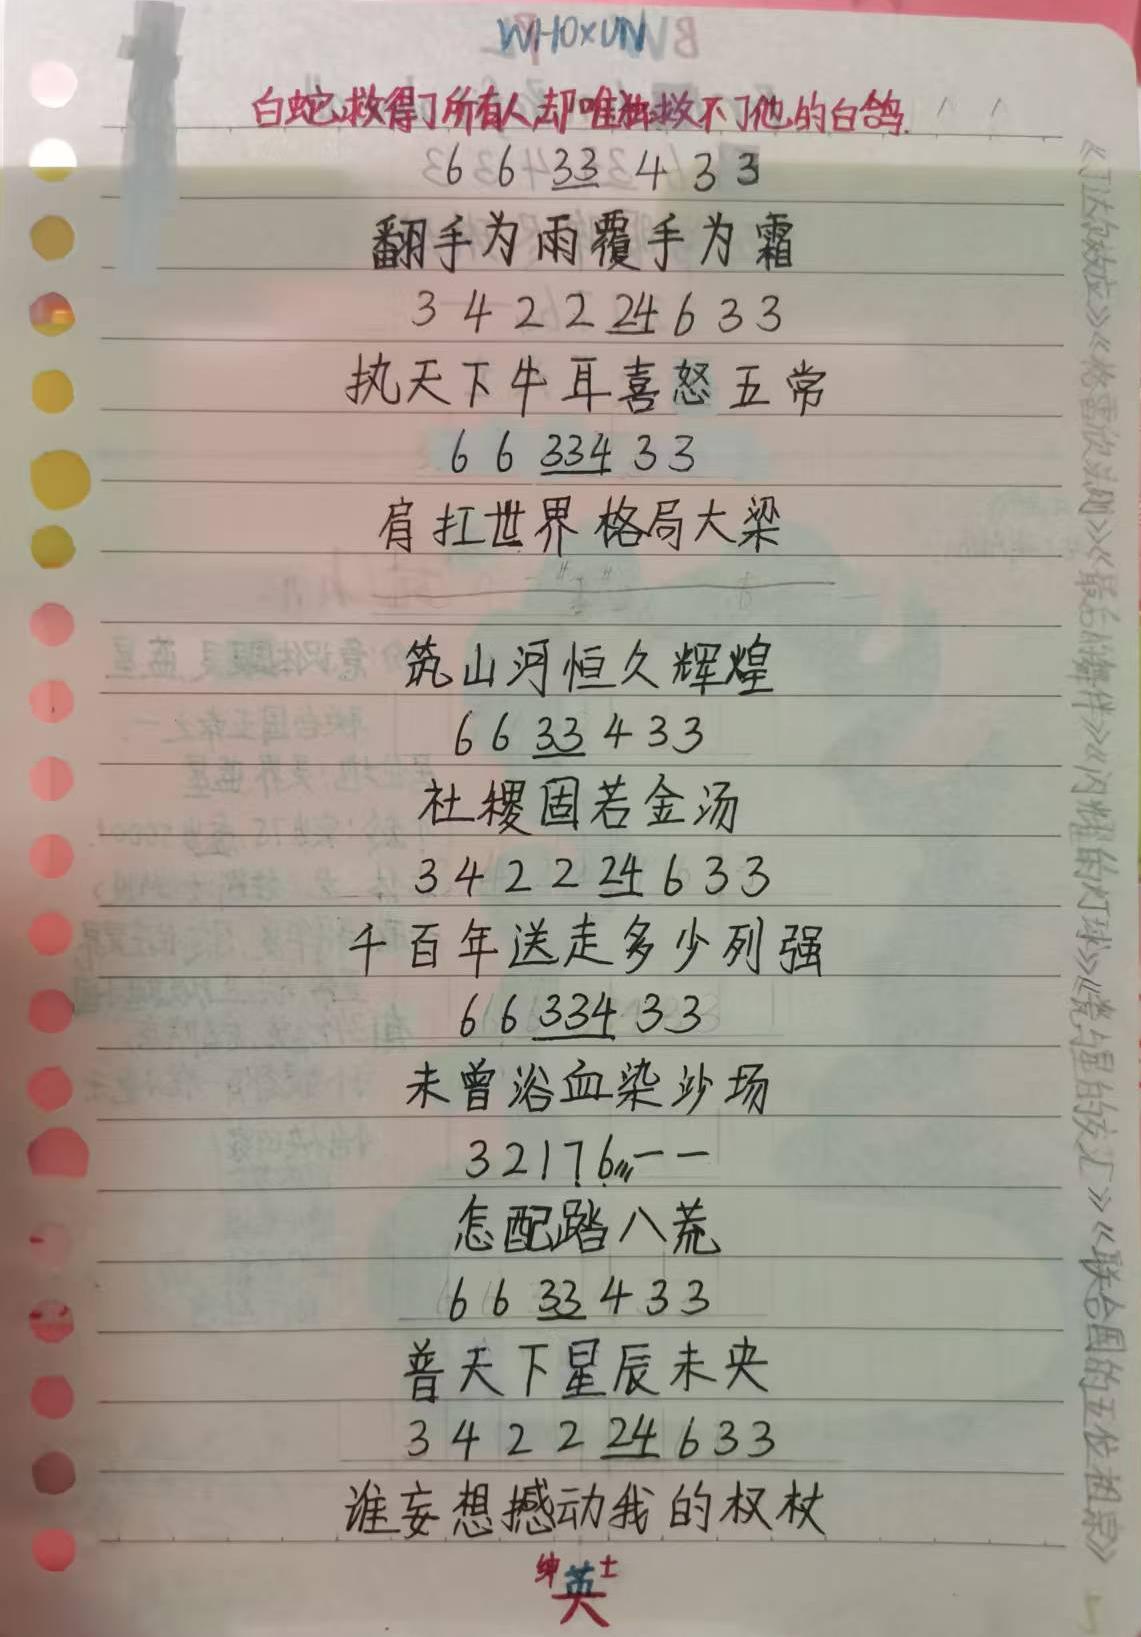 WHO×UN
白蛇救得了所有人却唯独救不了他的白鸽.
6 6 33 4 3 3
翻手为雨覆手为霜
3 4 2 2 24 6 3 3
执天下牛耳喜怒五常
6 6 334 3 3
肩扛世界格局大梁
筑山河恒久辉煌
6 6 33 4 3 3
社稷固若金汤
3 4 2 2 24 6 3 3
千百年送走多少列强
6 6 334 3 3
未曾浴血染沙场
3 2 1 7 6 — —
怎配踏八荒
6 6 33 4 3 3
普天下星辰未央
3 4 2 2 24 6 3 3
谁妄想撼动我的权杖
绅士
英